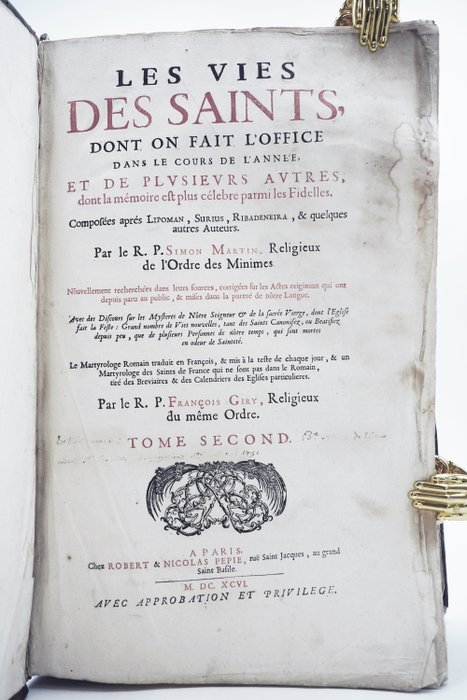 LES VIES
DES SAINTS,
DONT ON FAIT L'OFFICE
DANS LE COURS DE L'ANNÉE,
ET DE PLVSIEVRS AVTRES,
dont la mémoire est plus célebre parmi les Fidelles.
Composées aprés LIPOMAN, SURIUS, RIBADENEIRA, & quelques
autres Auteurs.
Par le R. P. SIMON MARTIN, Religieux
de l'Ordre des Minimes.
Nouvellement recherchées dans leurs sources, corrigées sur les Actes originaux qui ont
depuis paru au public, & mises dans la pureté de nôtre Langue.
Avec des Discours sur les Mysteres de Nôtre Seigneur & de la sacrée Vierge, dont l'Eglise
fait la Feste: Grand nombre de Vies nouvelles, tant des Saints Canonisez, ou Beatifiez
depuis peu, que de plusieurs Personnes de nôtre temps, qui sont mortes
en odeur de Sainteté.
Le Martyrologe Romain traduit en François, & mis à la teste de chaque jour, & un
Martyrologe des Saints de France qui ne sont pas dans le Romain,
tiré des Breviaires & des Calendriers des Eglises particulieres.
Par le R. P. FRANÇOIS GIRY, Religieux
du même Ordre.
TOME SECOND.
1751
A PARIS,
Chez ROBERT & NICOLAS PEPIE, ruë Saint Jacques, au grand
Saint Basile.
M. DC. XCVI.
AVEC APPROBATION ET PRIVILEGE.